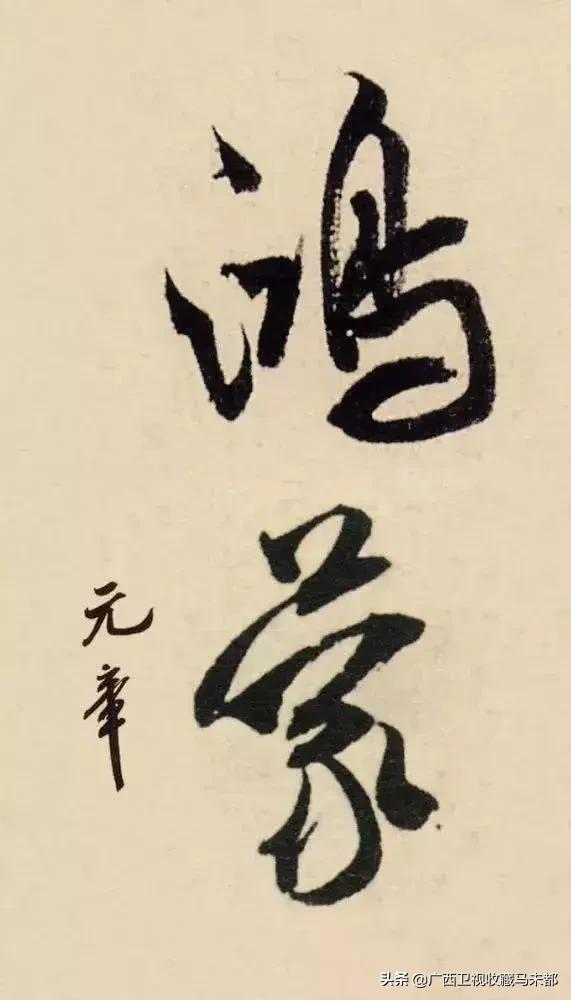 鸿蒙
元章
头条 @广西卫视收藏马未都